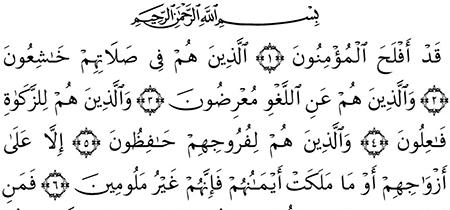 بِسْمِ اللَّهِ الرَّحْمَٰنِ الرَّحِيمِ
قَدْ أَفْلَحَ الْمُؤْمِنُونَ ﴿١﴾ الَّذِينَ هُمْ فِي صَلَاتِهِمْ خَاشِعُونَ
﴿٢﴾ وَالَّذِينَ هُمْ عَنِ اللَّغْوِ مُعْرِضُونَ ﴿٣﴾ وَالَّذِينَ هُمْ لِلزَّكَوٰةِ
فَاعِلُونَ ﴿٤﴾ وَالَّذِينَ هُمْ لِفُرُوجِهِمْ حَافِظُونَ ﴿٥﴾ إِلَّا عَلَىٰ
أَزْوَاجِهِمْ أَوْ مَا مَلَكَتْ أَيْمَانُهُمْ فَإِنَّهُمْ غَيْرُ مَلُومِينَ ﴿٦﴾ فَمَنِ